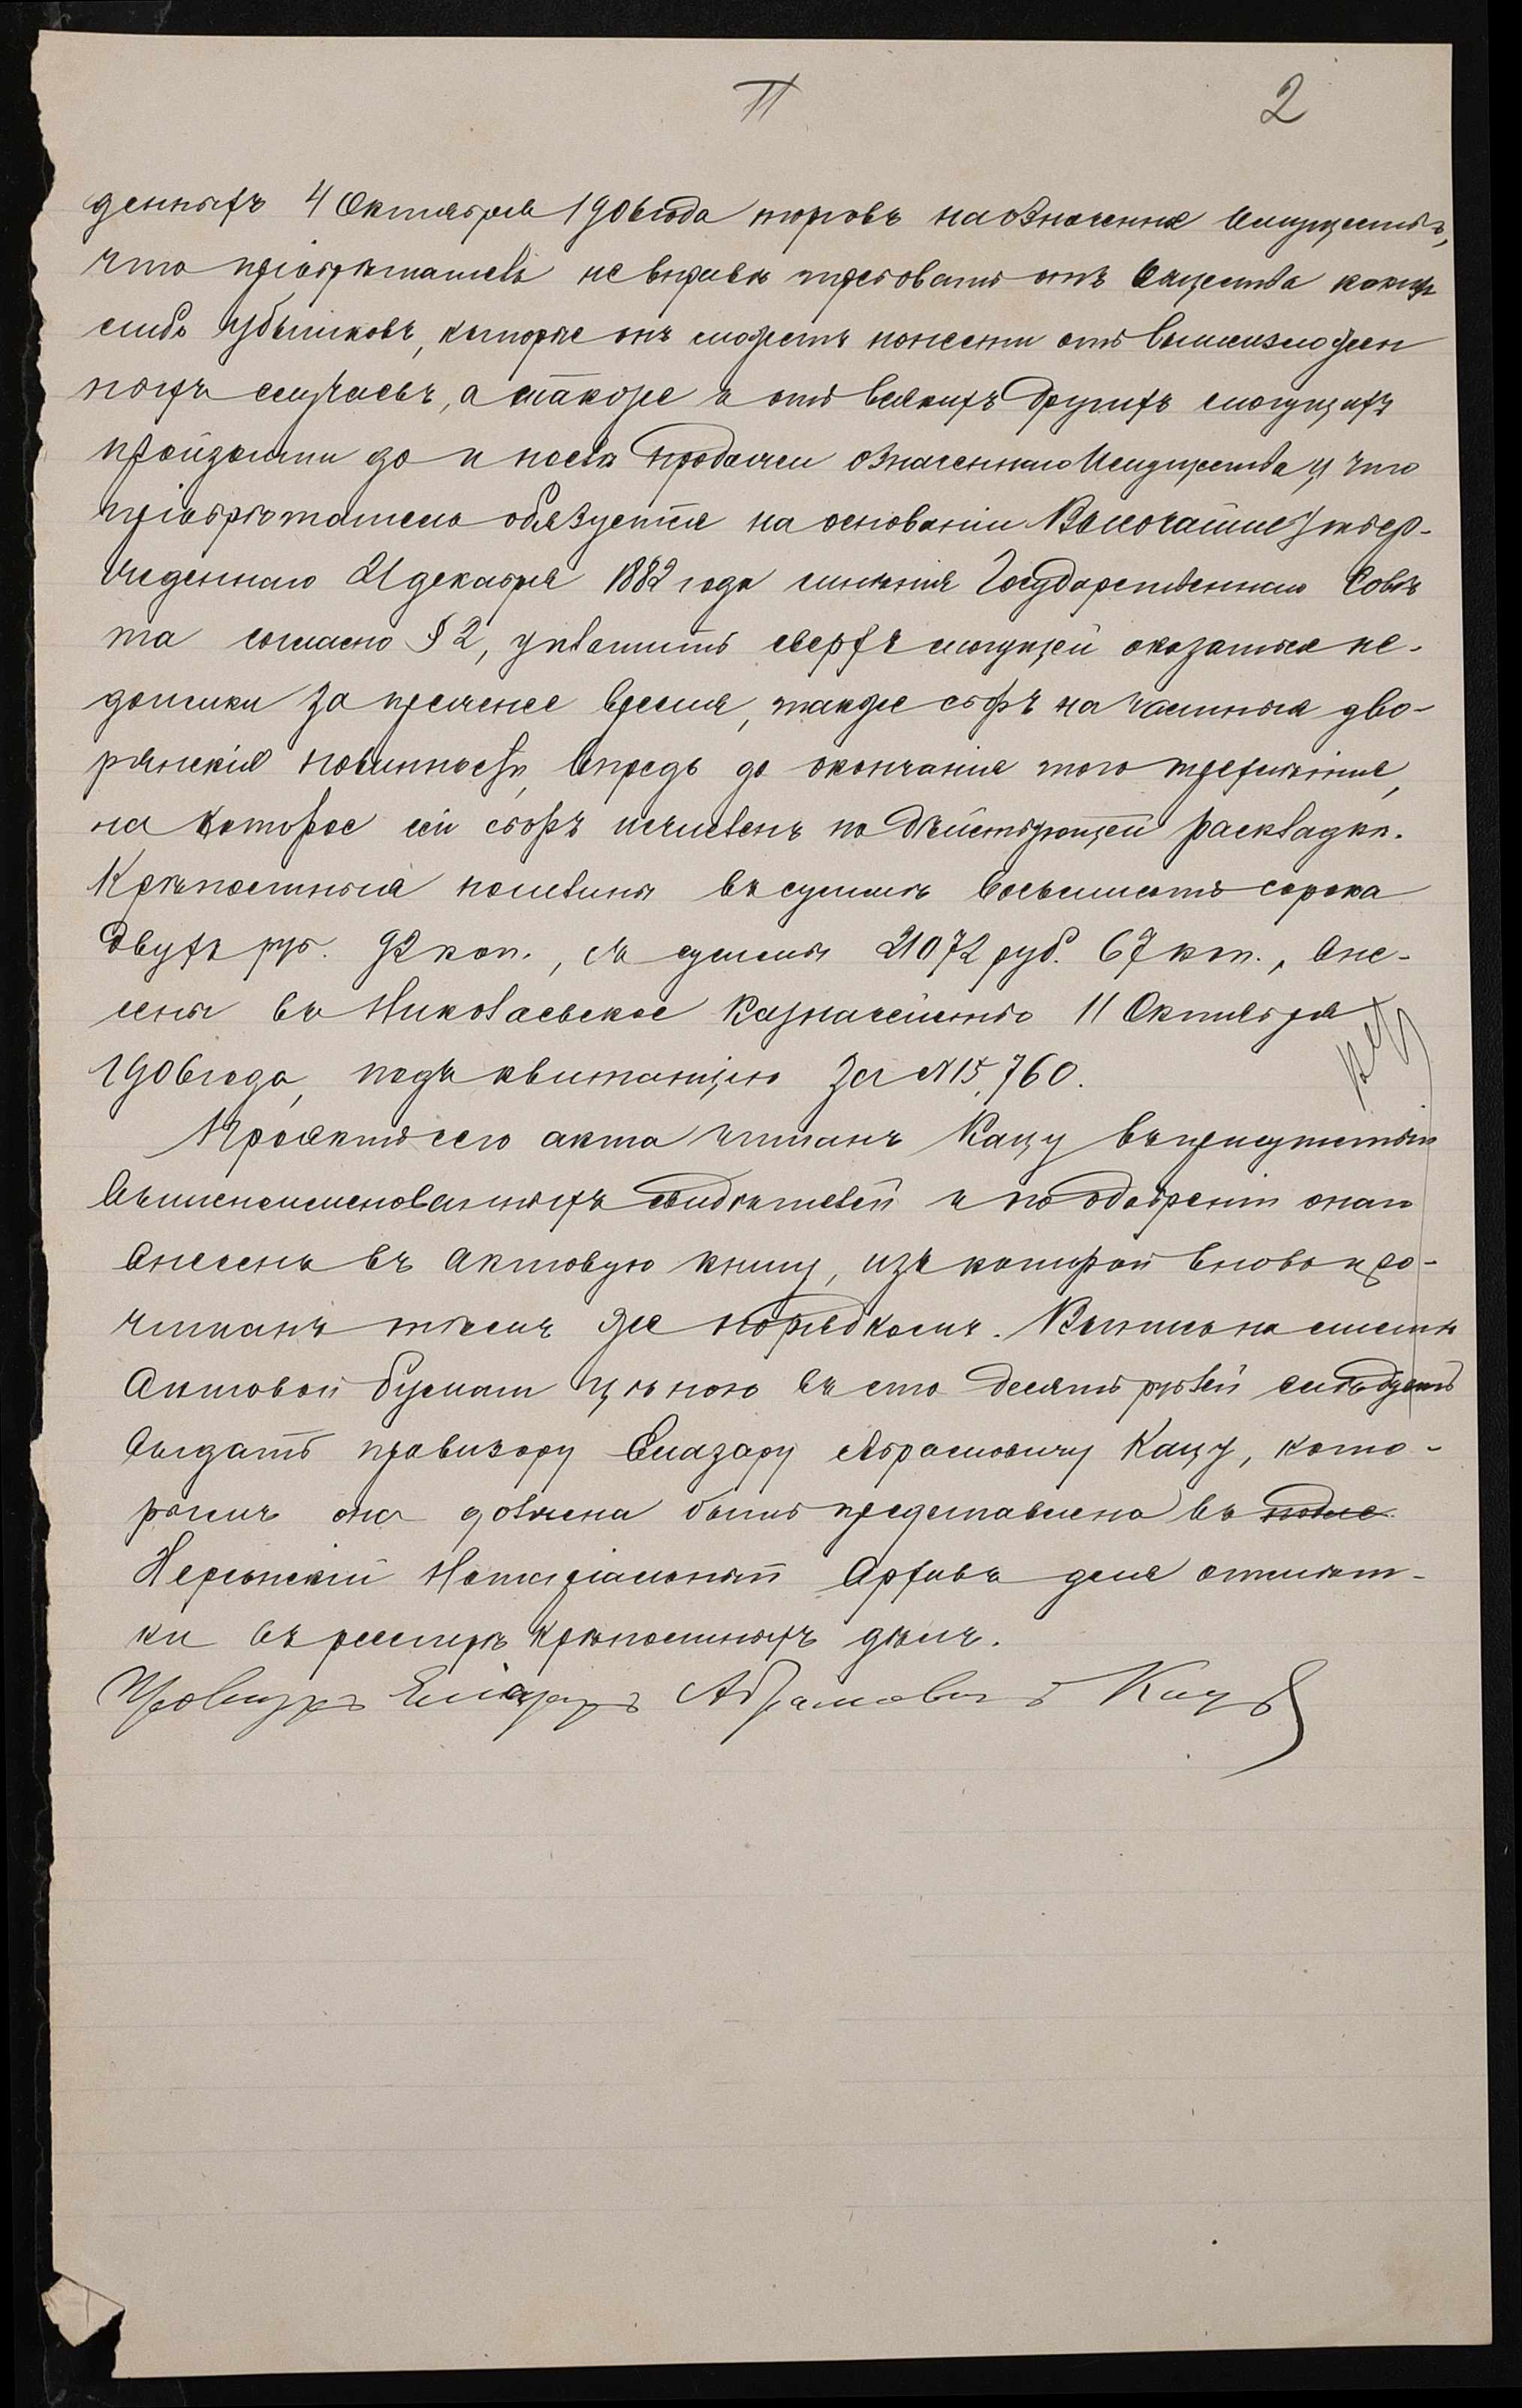 П 2
денныхъ 4 Октября 1906 года торговъ на означенное Имущество,
что пріобрѣтатель не вправѣ требовать отъ Общества какихъ
либо убытковъ, которые онъ можетъ понести отъ вышеизложен
ныхъ случаевъ, а также и отъ всякихъ другихъ могущихъ
произойти до и послѣ продажи означеннаго Имущества и что
пріобрѣтатель обязуется на основаніи Высочайше утвер-
жденнаго 21 декабря 1882 года мнѣнія Государственнаго Совѣ
та согласно § 2, уплатить сверхъ могущей оказаться не-
доимки за прежнее время, также сборъ на частныя дво-
рянскія повинности, впредь до окончанія того трехлѣтія,
на которое сей сборъ исчисленъ по дѣйствующей раскладкѣ.
Крѣпостныя пошлины въ суммѣ восьмисотъ сорока
двухъ руб. 92 коп., съ суммы 21072 руб. 67 коп., вне-
сены въ Николаевское Казначейство 11 Октября
1906 года, подъ квитанцію за № 15,760.
Проектъ сего акта читанъ Кацу въ присутствіи
вышепоименованныхъ свидѣтелей и по одобреніи онаго
внесенъ въ актовую книгу, изъ которой вновь про-
читанъ тѣмъ же порядкомъ. Выпись на листѣ
Актовой бумаги цѣною въ сто десять рублей слѣдуетъ
выдать провизору Елазару Абрамовичу Кацу, кото-
рымъ она должна быть представлена въ подле
Херсонскій Нотаріальный Архивъ для отмѣт-
ки въ реестрѣ крѣпостныхъ дѣлъ.
Провизоръ Елiазаръ Абрамовичъ Кацъ